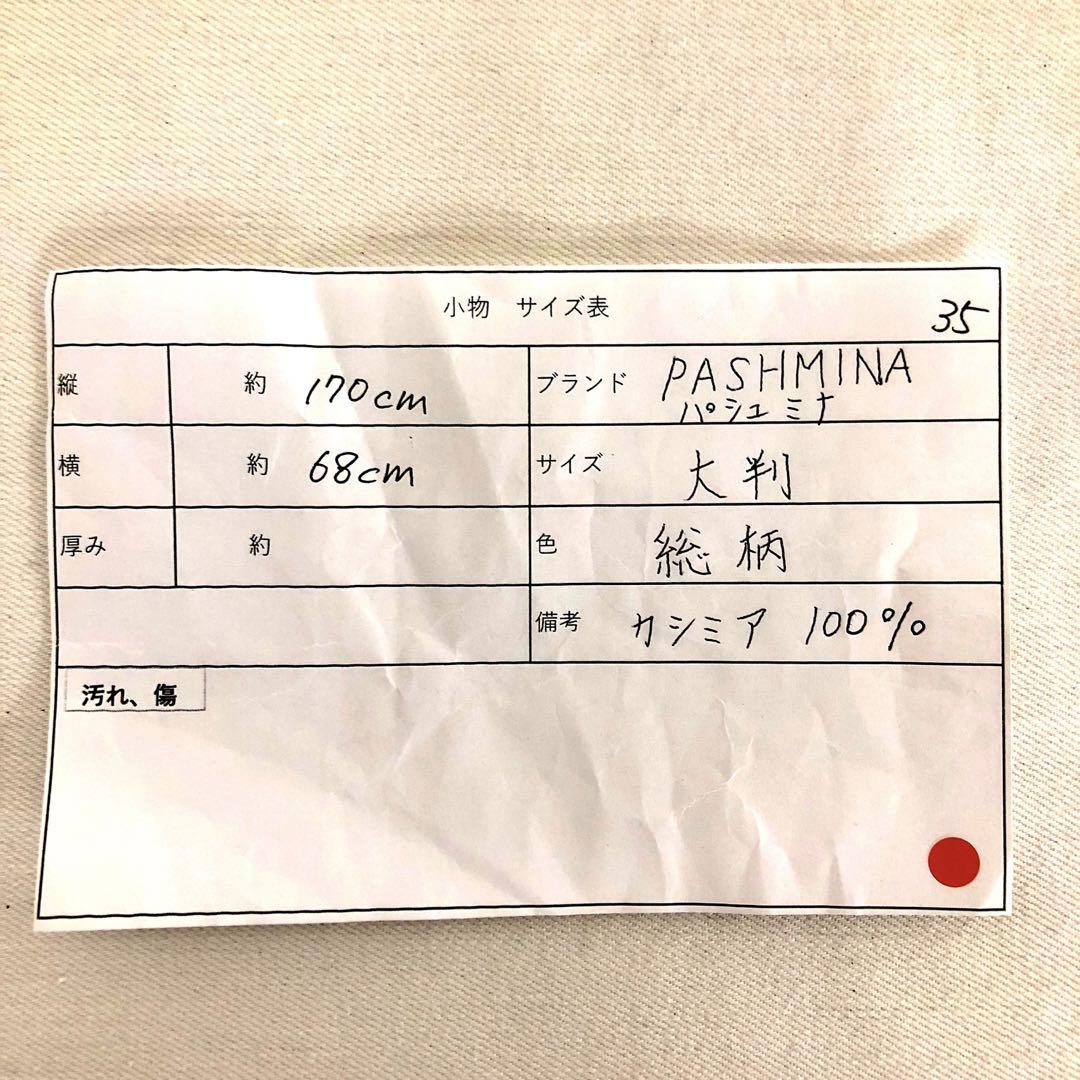 小物 サイズ表 35
縦 約 170cm ブランド PASHMINA
パシュミナ
横 約 68cm サイズ 大判
厚み 約 色 総柄
備考 カシミア 100%
汚れ、傷